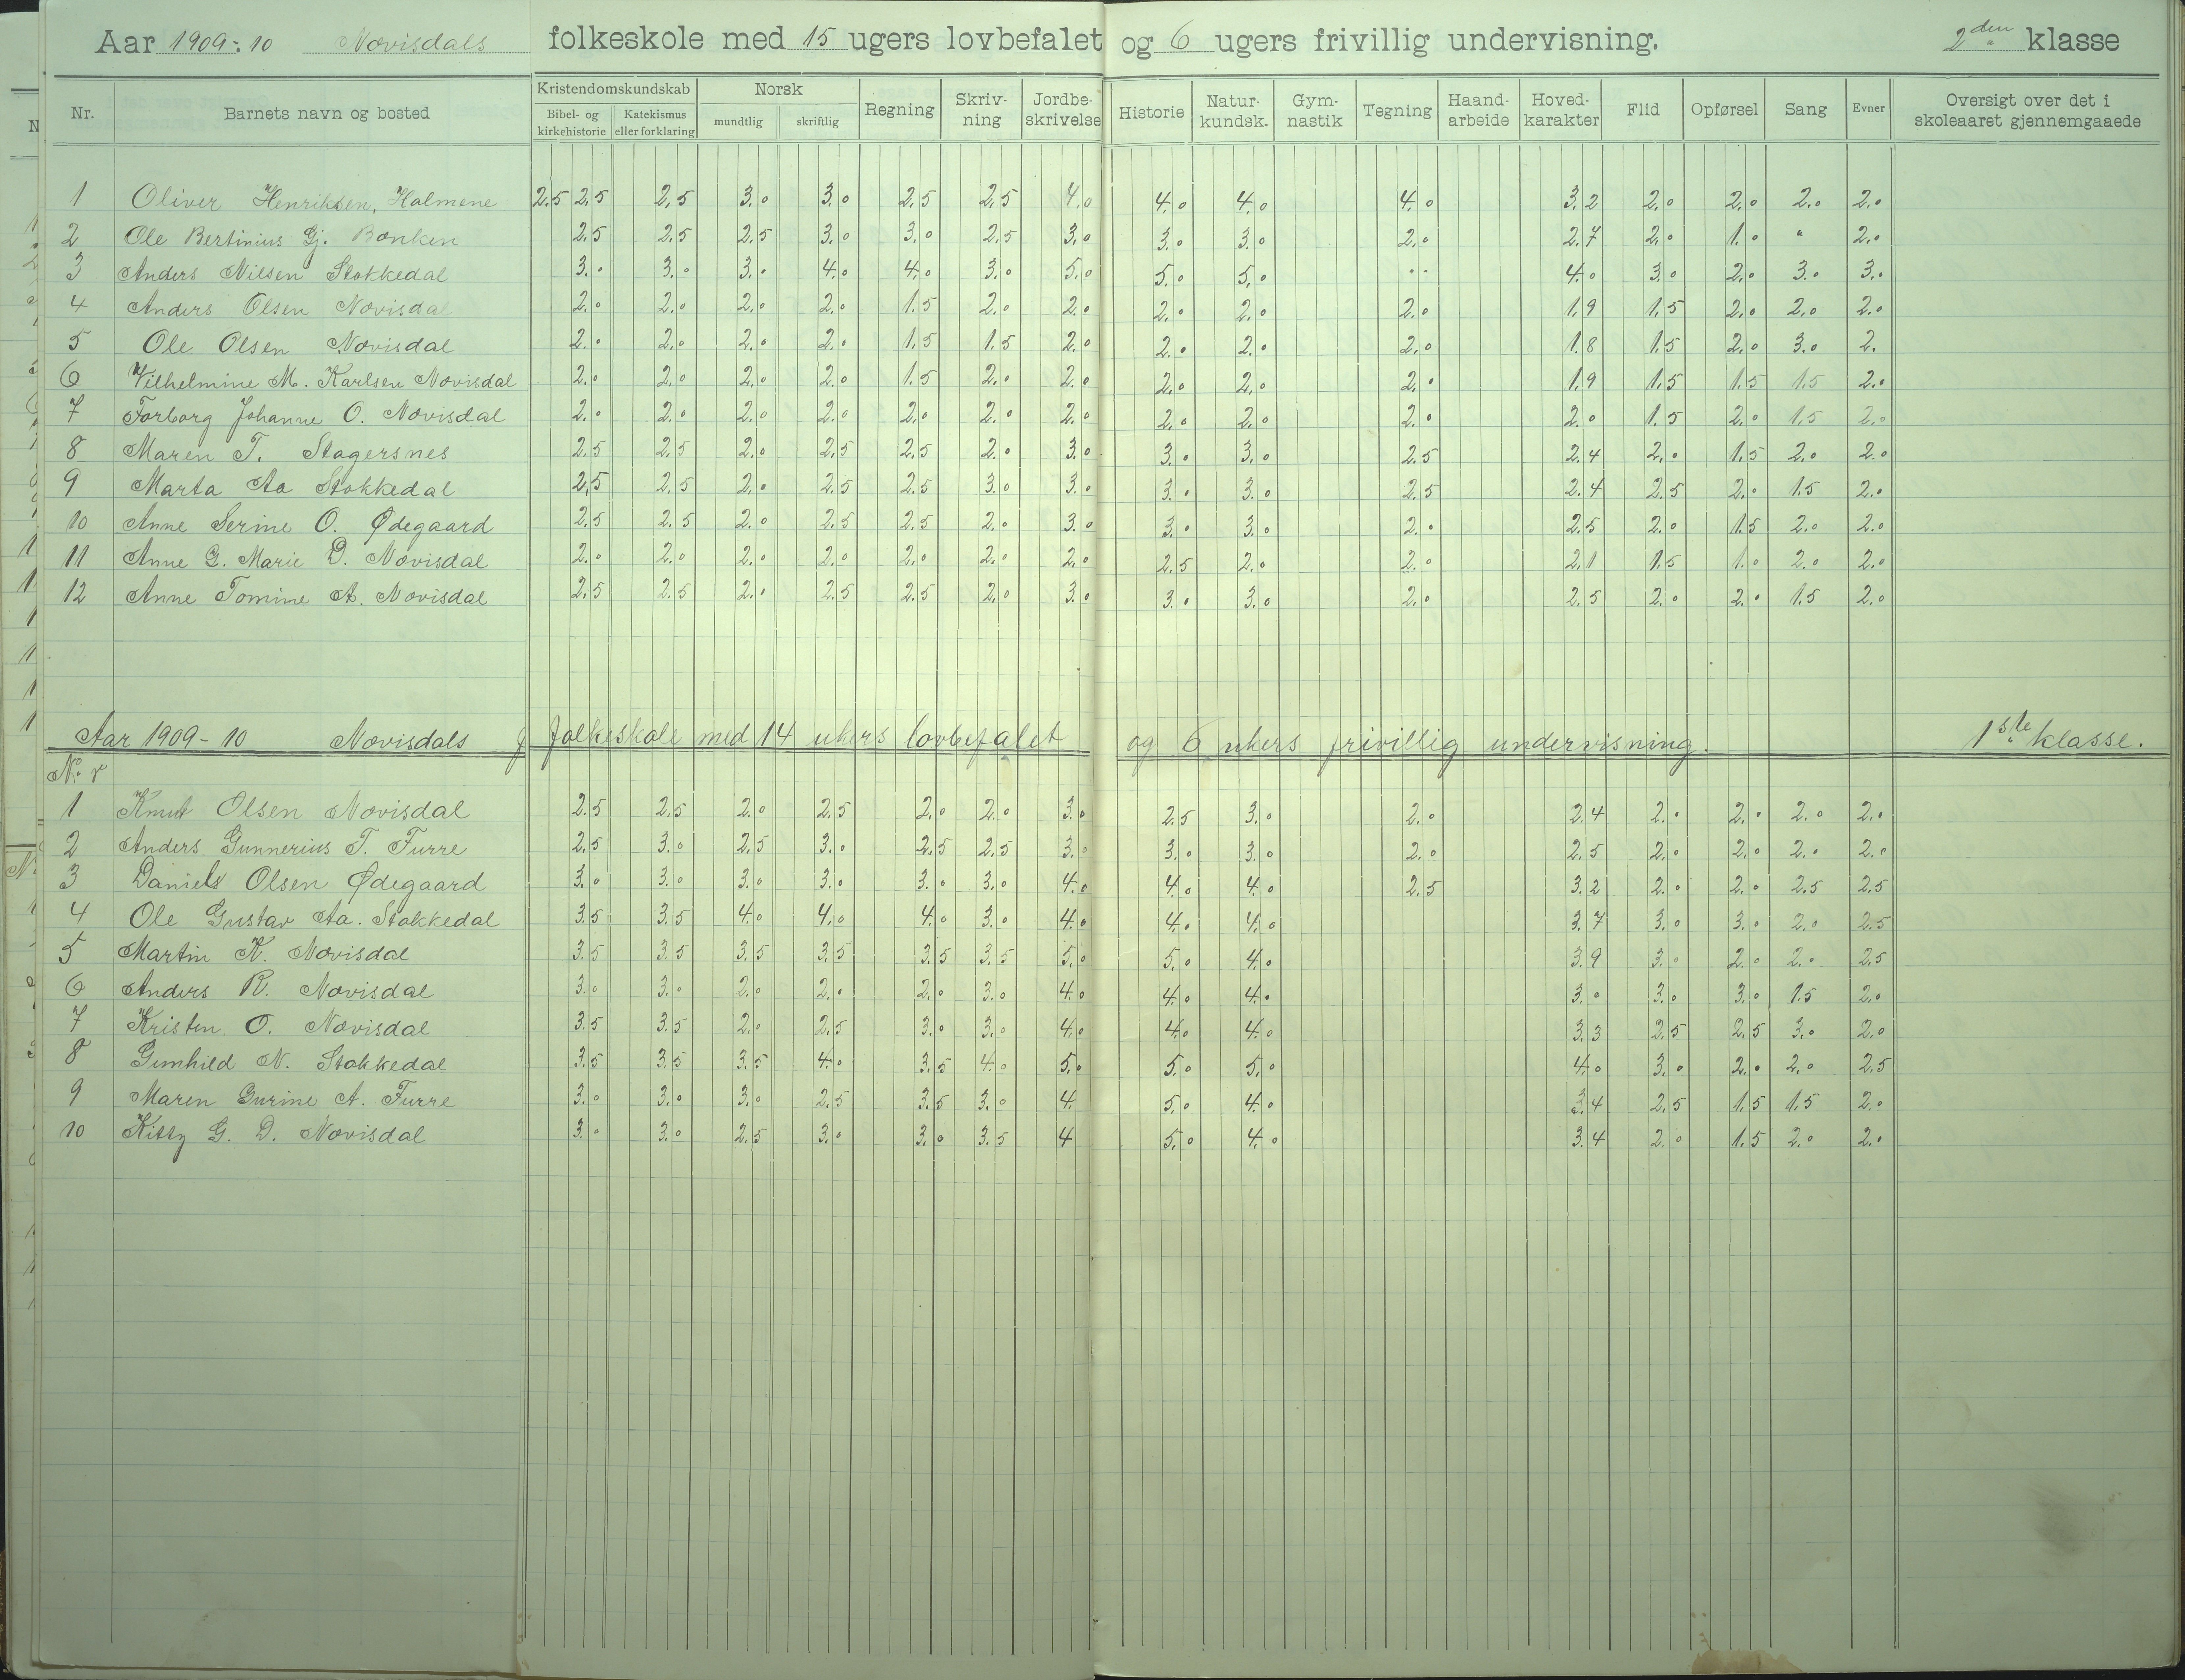 Aar 1909-10 Nævisdals folkeskole med 15 ugers lovbefalet og 6 ugers frivillig undervisning. 2den klasse
Nr. Barnets navn og bosted Kristendomskundskab Bibel- og kirkehistorie Katekismus eller forklaring Norsk mundtlig skriftlig Regning Skrivning Jordbeskrivelse Historie Naturkundsk. Gymnastik Tegning Haandarbeide Hovedkarakter Flid Opførsel Sang Evner Oversigt over det i skoleaaret gjennemgaaede
1 Oliver Henriksen, Holmene 2.5 2,5 2,5 3.0 3.0 2,5 2,5 4,0 4.0 4.0 4.0 3.2 2.0 2.0 2.0 2.0
2 Ole Bertinius Gj. Bonken 2,5 2,5 2,5 3.0 3.0 2,5 3.0 3.0 3.0 2.0 2.7 2.0 1.0 " 2.0
3 Anders Nilsen Stokkedal 3.0 3.0 3.0 4.0 4.0 3.0 5.0 5.0 5.0 .. 4.0 3.0 2.0 3.0 3.0
4 Anders Olsen Nævisdal 2.0 2.0 2.0 2.0 1.5 2.0 2.0 2.0 2.0 2.0 1.9 1.5 2.0 2.0 2.0
5 Ole Olsen Nævisdal 2.0 2.0 2.0 2.0 1.5 1.5 2.0 2.0 2.0 2.0 1.8 1.5 2.0 3.0 2.
6 Vilhelmine M. Karlsen Nævisdal 2.0 2.0 2.0 2.0 1.5 2.0 2.0 2.0 2.0 2.0 1.9 1.5 1.5 1.5 2.0
7 Torborg Johanne O. Nævisdal 2.0 2.0 2.0 2.0 2.0 2.0 2.0 2.0 2.0 2.0 2.0 1.5 2.0 1.5 2.0
8 Maren T. Stagersnes 2.5 2.5 2.0 2.5 2.5 2.0 3.0 3.0 3.0 2.5 2.4 2.0 1.5 2.0 2.0
9 Marta Aa Stokkedal 2,5 2.5 2.0 2.5 2.5 3.0 3.0 3.0 3.0 2.5 2.4 2.5 2.0 1.5 2.0
10 Anne Serine O. Ødegaard 2.5 2.5 2.0 2.5 2.5 2.0 3.0 3.0 3.0 2.0 2.5 2.0 1.5 2.0 2.0
11 Anne G. Marie D. Nævisdal 2.0 2.0 2.0 2.0 2.0 2.0 2.0 2.5 2.0 2.0 2.1 1.5 1.0 2.0 2.0
12 Anne Tomine A. Nævisdal 2.5 2.5 2.0 2.5 2.5 2.0 3.0 3.0 3.0 2.0 2.5 2.0 2.0 1.5 2.0
Aar 1909-10 Nævisdals folkeskole med 14 ukers lovbefalet og 6 ukers frivillig undervisning. 1ste klasse.
Nr
1 Knut Olsen Nævisdal 2.5 2.5 2.0 2.5 2.0 2.0 3.0 2.5 3.0 2.0 2.4 2.0 2.0 2.0 2.0
2 Anders Gunnerius T. Furre 2.5 3.0 2.5 3.0 2.5 2.5 3.0 3.0 3.0 2.0 2.5 2.0 2.0 2.0 2.0
3 Daniels Olsen Ødegaard 3.0 3.0 3.0 3.0 3.0 3.0 4.0 4.0 4.0 2.5 3.2 2.0 2.0 2.5 2.5
4 Ole Gustav Aa. Stokkedal 3.5 3.5 4.0 4.0 4.0 3.0 4.0 4.0 4.0 3.7 3.0 3.0 2.0 2.5
5 Martin K. Nævisdal 3.5 3.5 3.5 3.5 3.5 3.5 5.0 5.0 4.0 3.9 3.0 2.0 2.0 2.5
6 Anders R. Nævisdal 3.0 3.0 2.0 2.0 2.0 3.0 4.0 4.0 4.0 3.0 3.0 3.0 1.5 2.0
7 Kristen O. Nævisdal 3.5 3.5 2.0 2.5 3.0 3.0 4.0 4.0 4.0 3.3 2.5 2.5 3.0 2.0
8 Gunhild N. Stokkedal 3.5 3.5 3.5 4.0 3.5 4.0 5.0 5.0 5.0 4.0 3.0 2.0 2.0 2.5
9 Maren Gurine A. Furre 3.0 3.0 3.0 2.5 3.5 3.0 4. 5.0 4.0 3.4 2.5 1.5 1.5 2.0
10 Kitty G. D. Nævisdal 3.0 3.0 2.5 3.0 3.0 3.5 4 5.0 4.0 3.4 2.0 1.5 2.0 2.0